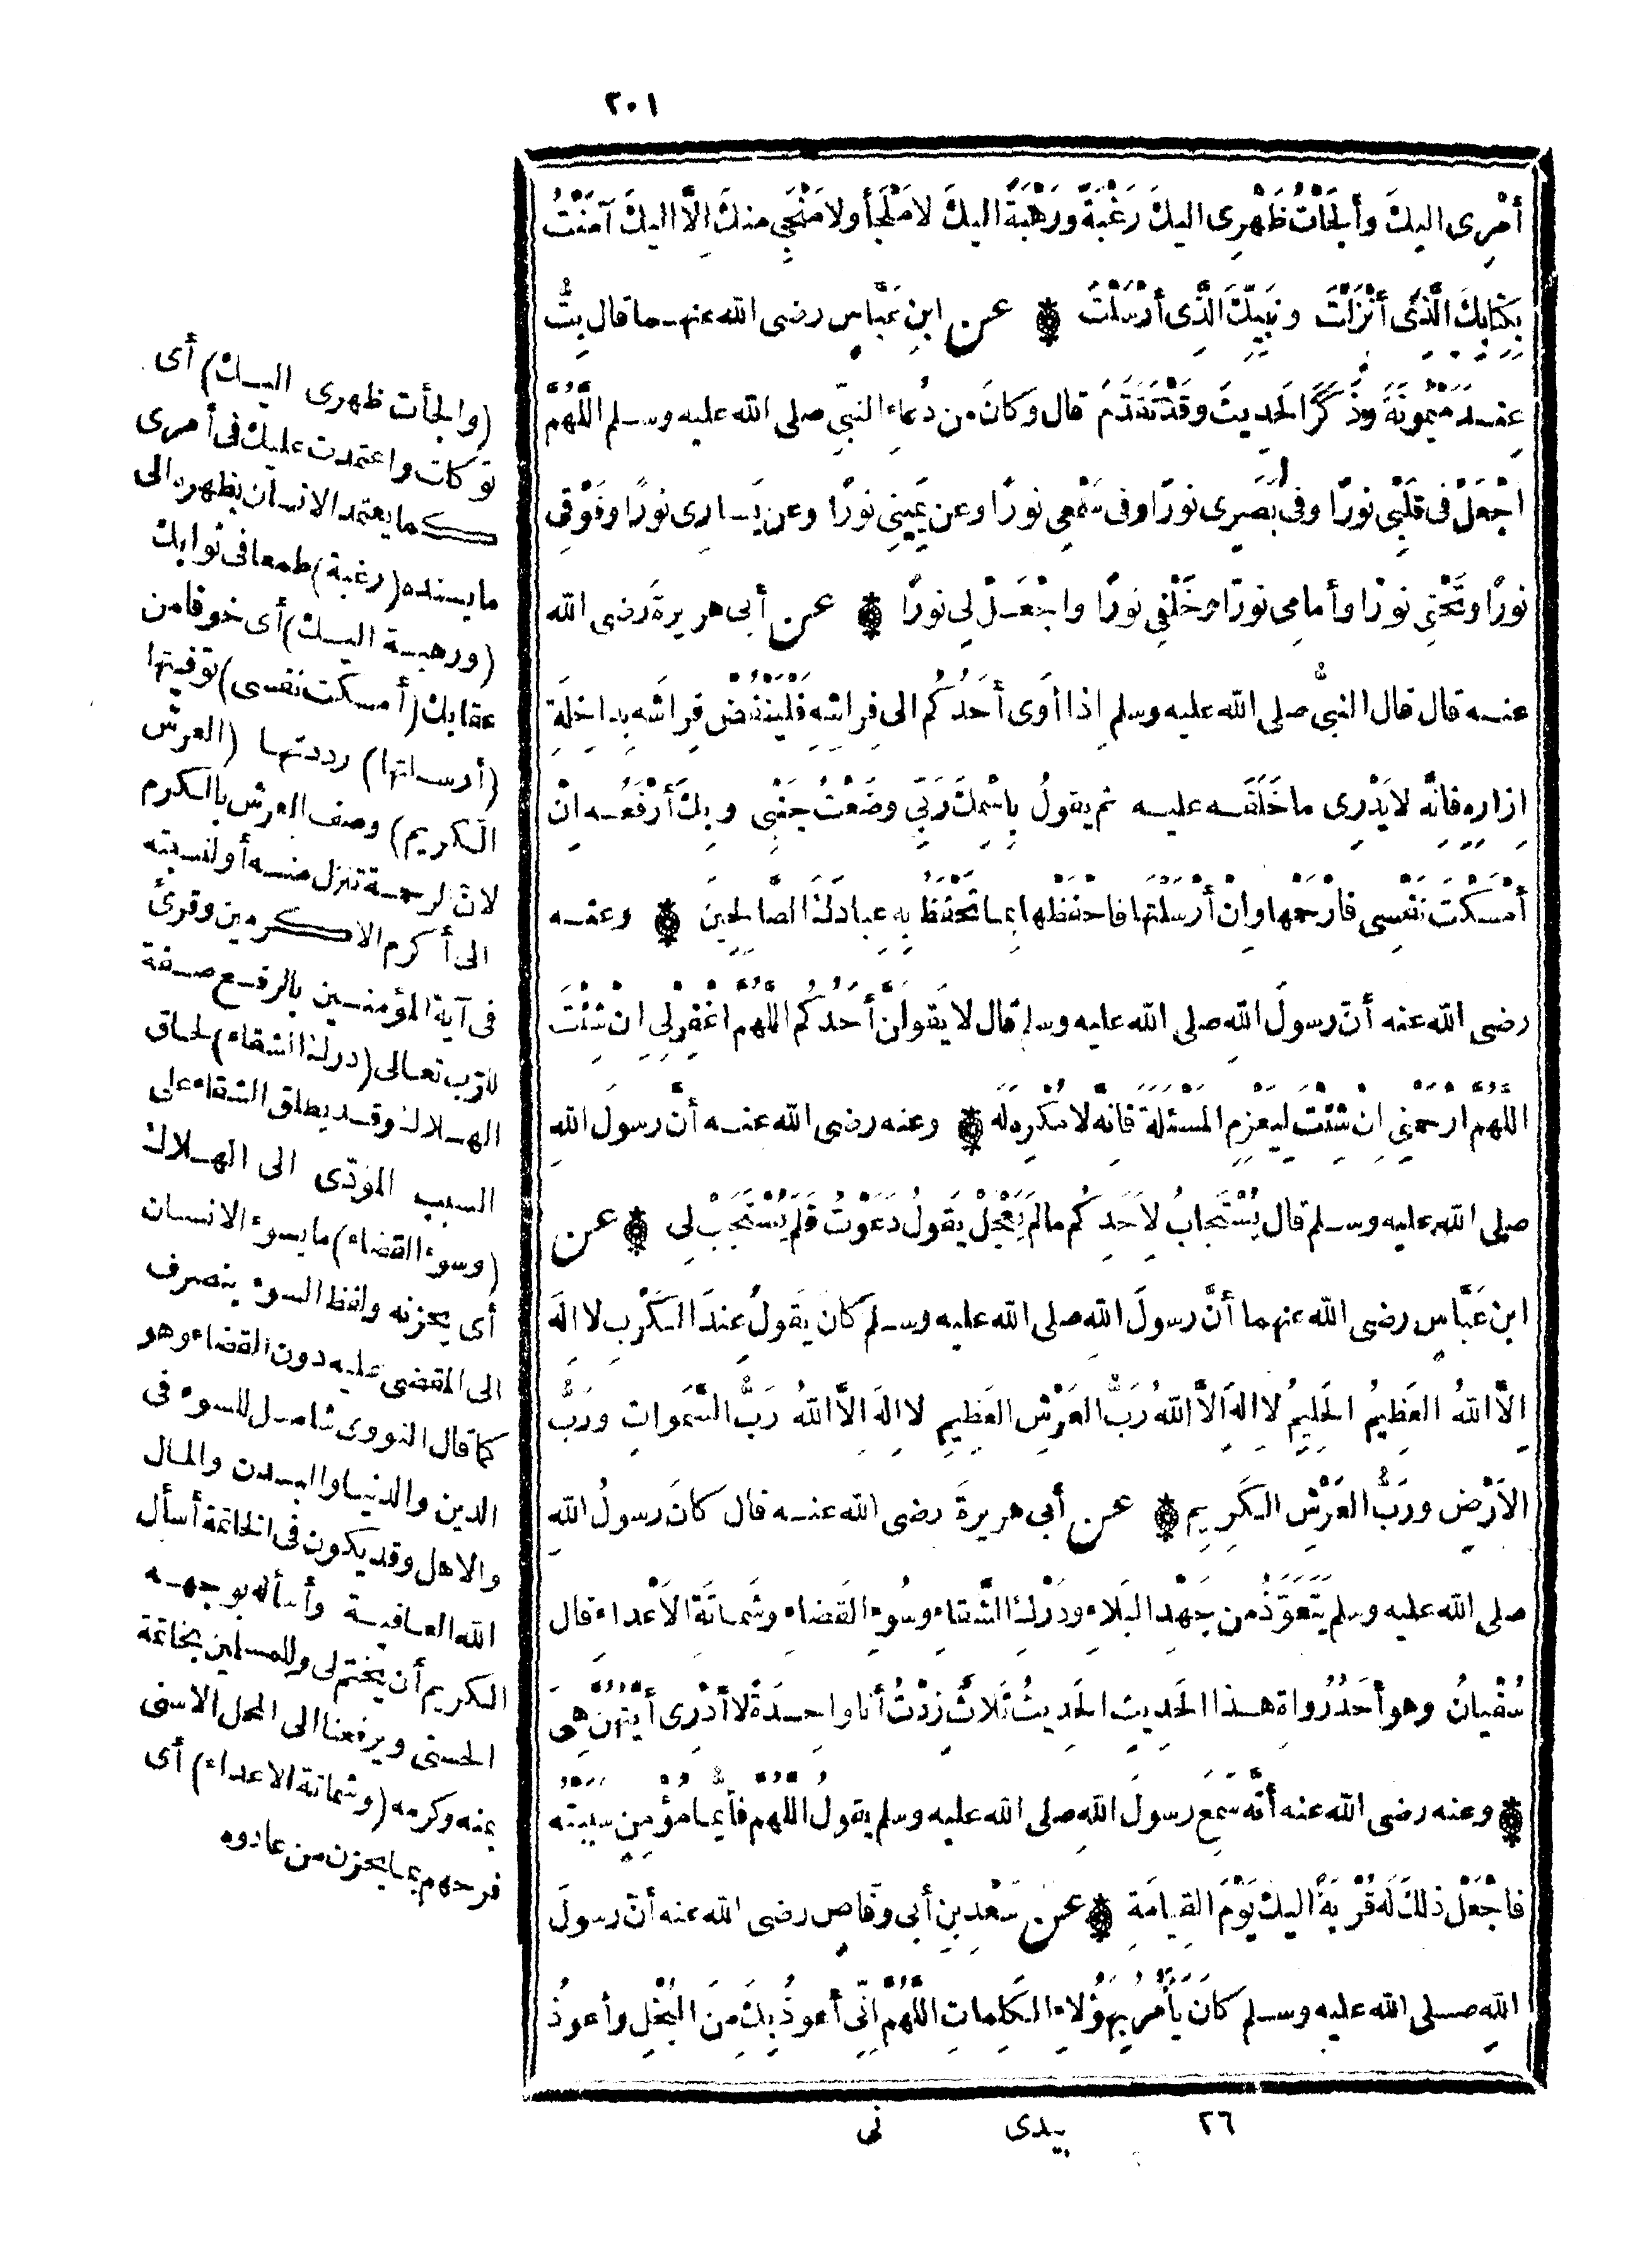 ٢٠١
أمْرِى اليكَ وأَلجَأْتُ ظَهْرِى اليكَ رَغْبَةً ورَهْبَةً اليكَ لامَلْجَأَ ولا مَنْجَى منكَ إلَّا اليكَ آمَنْتُ
بِكِتَابِكَ الَّذِى أَنْزَلْتَ ونَبِيِّكَ الَّذِى أَرْسَلْتَ ۞ عن ابنِ عَبَّاسٍ رضى الله عنهـما قال بِتُّ
عِنـدَ مَيْمُونَةَ وذَكَرَ الحَدِيثَ وقَدْ تَقَدَّمَ قال وكانَ من دُعاءِ النبيِّ صلى الله عليه وسلم اللَّهُمَّ
اجْعَلْ فى قَلْبِى نورًا وفى بَصَرِى نورًا وفى سَمْعِى نورًا وعن يَمِينِى نورًا وعن يَسارِى نورًا وفَوْقِى
نورًا وتَحْتِى نورًا وأمامِى نورًا وخَلْفِى نورًا واجْعَـلْ لِى نورًا ۞ عن أبى هريرةَ رضى الله
عنـه قال قال النبىُّ صلى الله عليه وسلم إذا أوَى أحَدُكُم الى فِراشِهِ فَلْيَنْفُضْ فِراشَهُ بِداخِلَةِ
إزارِهِ فانَّهُ لايَدْرِى ما خَلَفَـه عليـه ثم يقولُ بِاسْمِكَ رَبِّى وضَعْتُ جَنْبِى وبِكَ أَرْفَعُـه إنْ
أمْسَكْتَ نَفْسِى فارْحَمْها وإنْ أرْسَلْتَها فاحْفَظْها بِما تَحْفَظُ بِهِ عِبادَكَ الصَّالِحِينَ ۞ وعنـه
رضى الله عنه أنّ رسولَ اللهِ صلى الله عليه وسلم قال لا يَقولَنَّ أحَدُكُم اللَّهُمَّ اغْفِرْ لِى إنْ شِئْتَ
اللَّهُمَّ ارْحَمْنِى إنْ شِئْتَ لِيَعْزِمِ المَسْئَلَةَ فانَّهُ لا مُكْرِهَ لَهُ ۞ وعنه رضى الله عنـه أنّ رسولَ اللهِ
صلى الله عليه وسـلم قال يُسْتَجابُ لِأحَدِكُم مالَم يَعْجَلْ يَقولُ دَعَوْتُ فَلَم يُسْتَجَبْ لِى ۞ عن
ابنِ عَبَّاسٍ رضى الله عنهما أنَّ رسولَ اللهِ صلى الله عليه وسـلم كان يَقولُ عِندَ الكَرْبِ لا إلَهَ
إلَّا اللهُ العَظِيمُ الحَلِيمُ لا إلَهَ إلَّا اللهُ رَبُّ العَرْشِ العَظِيمِ لا إلَهَ إلَّا اللهُ رَبُّ السَّمَواتِ ورَبُّ
الأرْضِ ورَبُّ العَرْشِ الكَرِيمِ ۞ عن أبي هريرةَ رضى الله عنـه قال كانَ رسولُ اللهِ
صلى الله عليه وسلم يَتَعَوَّذُ من جَهْدِ البَلاءِ ودَرَكِ الشَّقاءِ وسُوءِ القَضاءِ وشَماتَةِ الأَعْداءِ قال
سُفْيانُ وهو أحَدُ رُواةِ هـذا الحَدِيثِ الحَدِيثُ ثَلاثٌ زِدْتُ أنا واحِـدَةً لا أدْرِى أيَّتُهُنَّ هِىَ
۞ وعنه رضى الله عنه أنّه سَمِعَ رسولَ اللهِ صلى الله عليه وسلم يقولُ اللَّهُمَّ فأَيُّما مُؤْمِنٍ سَبَبْتُه
فاجْعَلْ ذلكَ لَهُ قُرْبَةً اليكَ يَوْمَ القِيامَةِ ۞ عن سَعْدِ بنِ أبى وقَّاصٍ رضى الله عنه أنّ رسولَ
اللهِ صلى الله عليه وسلم كانَ يَأْمُرُ بِهؤُلاءِ الكَلِماتِ اللَّهُمَّ إنِّى أعوذُ بِكَ مِنَ البُخْلِ وأعوذُ
٢٦ يدى نى
(وألجأت ظهرى اليـك) أى
توكلت واعتمدت عليك فى أمرى
كما يعتمد الانسان بظهره الى
ما يسنده (رغبة) طمعا فى ثوابك
(ورهبـة اليـك) أى خوفا من
عقابك (أمسكت نفسى) توفيتها
(أرسـلتها) رددتهـا (العرش
الكريم) وصف العرش بالكرم
لانّ الرحمـة تنزل منـه أو لنسبته
الى أكرم الاكرمين وقرئ
فى آية المؤمنـين بالرفـع صـفة
للرب تعـالى (درك الشقاء) لحاق
الهـلاك وقـد يطلق الشقاء على
السبب المؤدّى الى الهـلاك
(وسوء القضاء) ما يسوء الانسان
أى يحزنه ولفظ السوء ينصرف
الى المقضى عليه دون القضاء وهو
كما قال النووى شامـل للسوء فى
الدين والدنيـا والبـدن والمـال
والاهل وقد يكون فى الخاتمة أسأل
الله العـافيـة وأسأله بوجهـه
الكريم أن يختم لى وللمسلمين بخاتمة
الحسنى ويرفعنا الى المحل الاسنى
بمنه وكرمه (وشماتة الاعداء) أى
فرحهم بمـا يحزن من عادوه